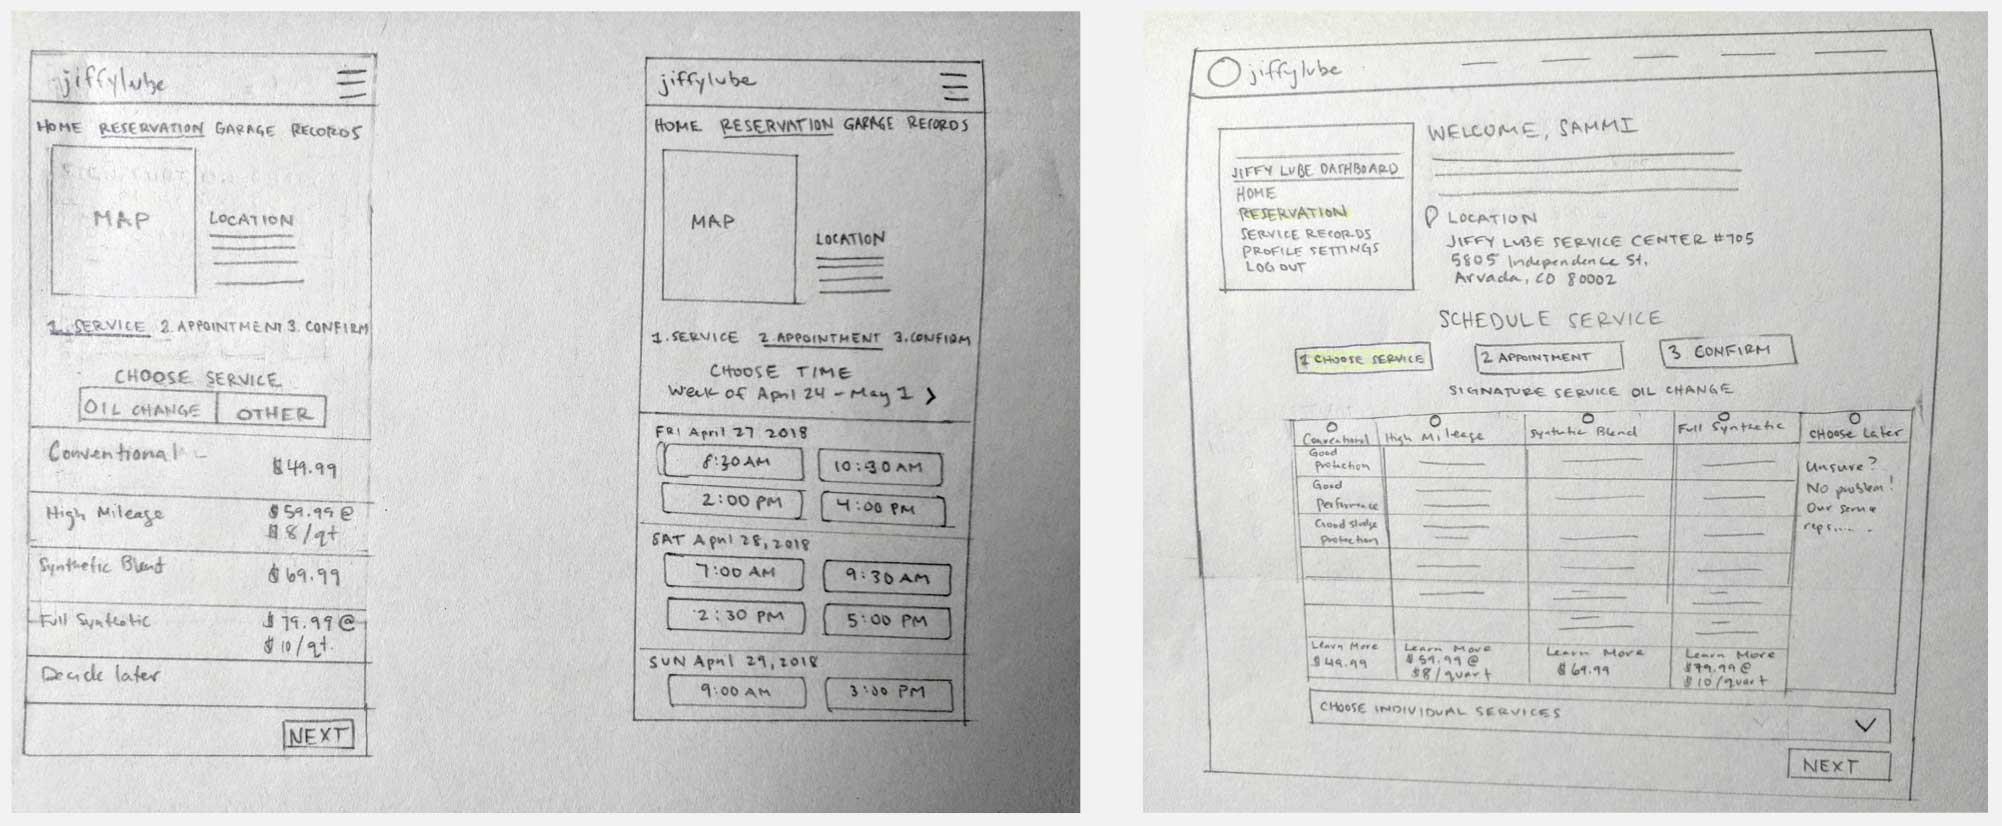 jiffylube
HOME RESERVATION GARAGE RECORDS
MAP
LOCATION
1. SERVICE 2. APPOINTMENT 3. CONFIRM
CHOOSE SERVICE
OIL CHANGE OTHER
Conventional $49.99
High Mileage $59.99 @
$8/qt
Synthetic Blend $69.99
Full Synthetic $79.99 @
$10/qt.
Decide later
NEXT
jiffylube
HOME RESERVATION GARAGE RECORDS
MAP
LOCATION
1. SERVICE 2. APPOINTMENT 3. CONFIRM
CHOOSE TIME
Week of April 24 - May 1 >
FRI April 27 2018
8:30 AM 10:30 AM
2:00 PM 4:00 PM
SAT April 28, 2018
7:00 AM 9:30 AM
2:30 PM 5:00 PM
SUN April 29, 2018
9:00 AM 3:00 PM
jiffylube
WELCOME, SAMMI
JIFFY LUBE DASHBOARD
HOME
RESERVATION
SERVICE RECORDS
PROFILE SETTINGS
LOG OUT
LOCATION
JIFFY LUBE SERVICE CENTER #705
5805 Independence St.
Arvada, CO 80002
SCHEDULE SERVICE
1 CHOOSE SERVICE 2 APPOINTMENT 3 CONFIRM
SIGNATURE SERVICE OIL CHANGE
Conventional High Mileage Synthetic Blend Full Synthetic CHOOSE Later
Good
protection
Good
performance
Good sludge
protection
Unsure?
No problem!
Our service
reps.....
Learn More
$49.99
Learn More
$59.99 @
$8/quart
Learn More
$69.99
Learn More
$79.99 @
$10/quart
CHOOSE INDIVIDUAL SERVICES
NEXT